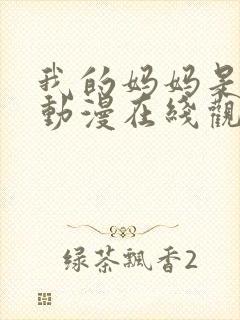 我的妈妈是
動漫在綫觀
绿茶飄香2